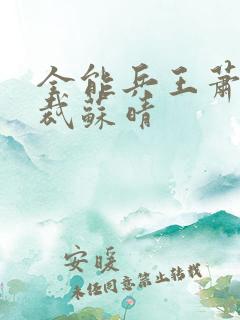 全能兵王蕭
裁蘇晴
安暖
未经同意禁止转载